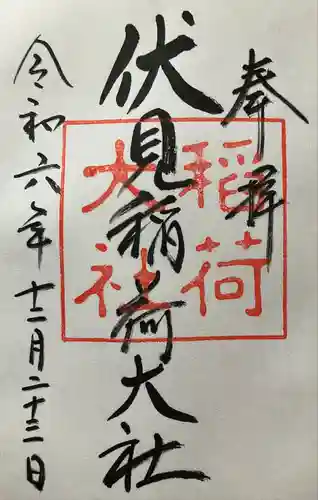 奉拝
伏見稲荷大社
令和六年十二月二十三日
稲荷
大社